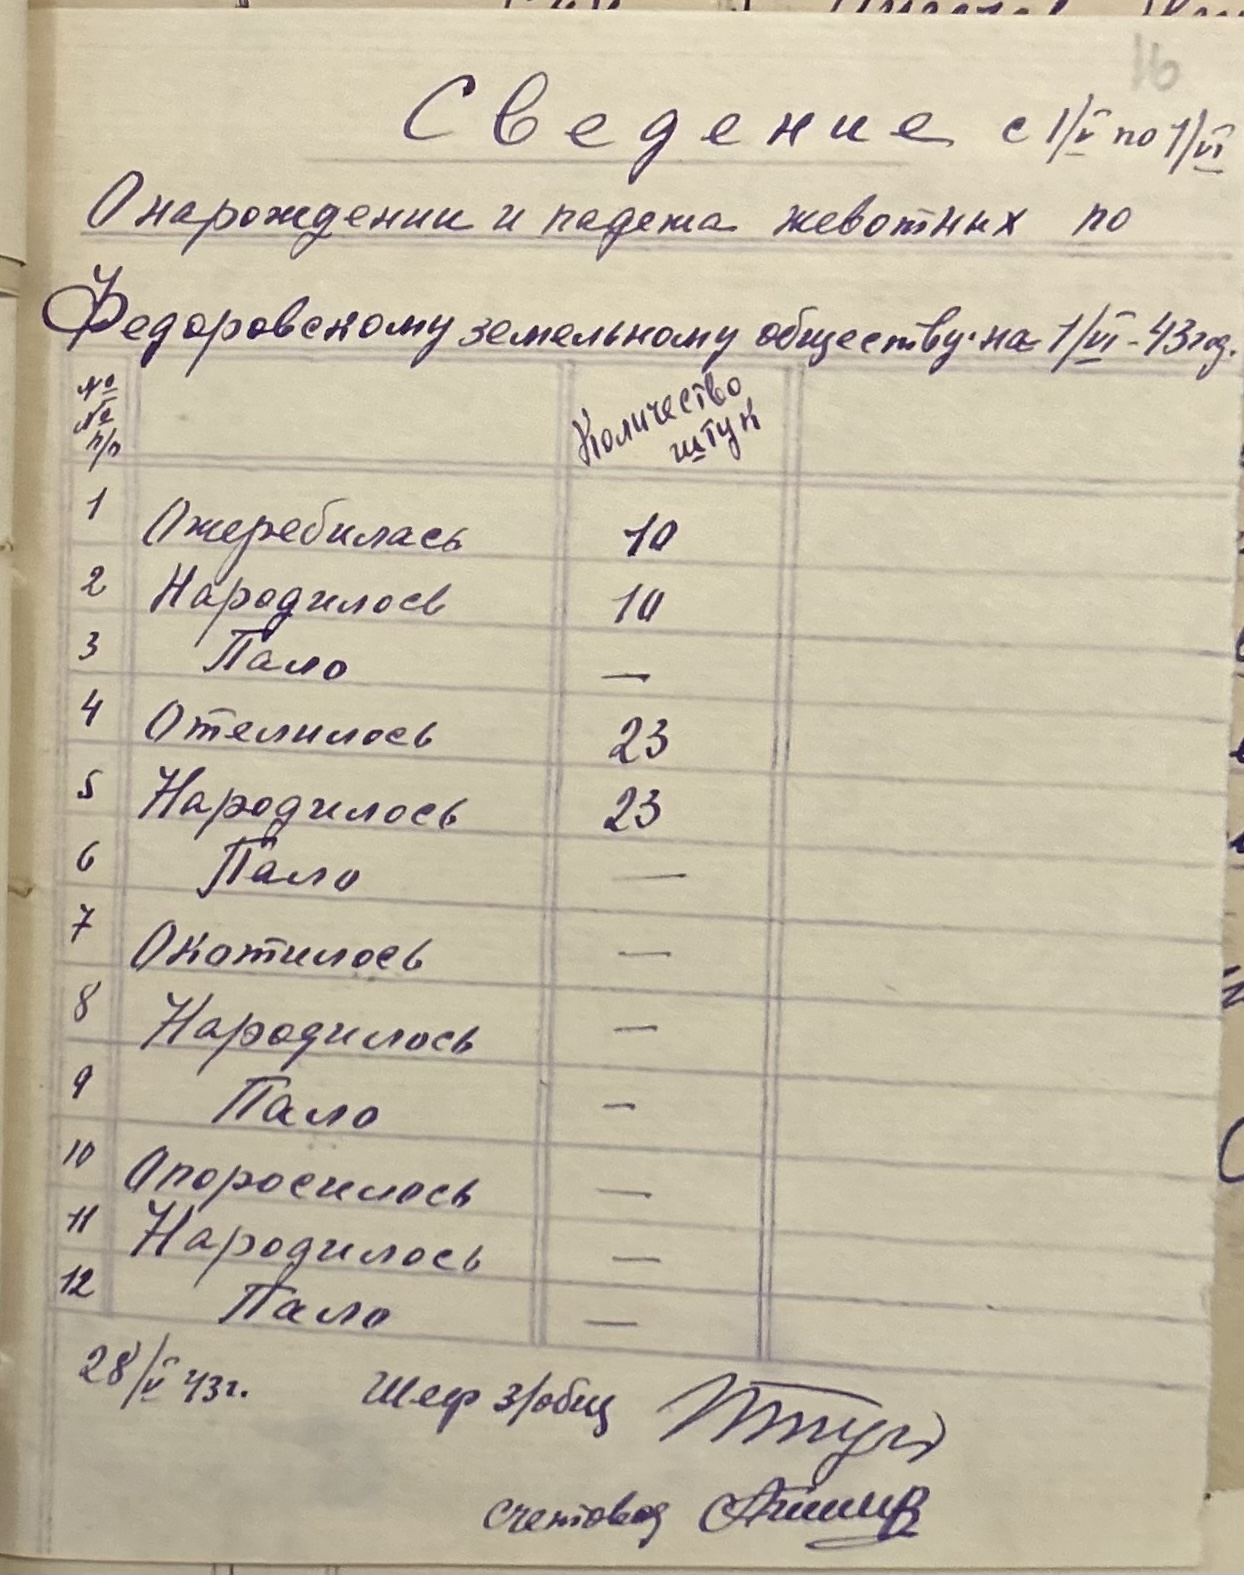 16
Сведение с 1/V по 1/VI
О нарождении и падежа жевотных по
Федоровскому земельному обществу на 1/VI - 43 год.
№№ п/п Количество штук
1 Ожеребилась 10
2 Народилось 10
3 Пало —
4 Отелилось 23
5 Народилось 23
6 Пало —
7 Окотилось —
8 Народилось —
9 Пало —
10 Опоросилось —
11 Народилось —
12 Пало —
28/V 43 г. Шеф з/общ
счетовод